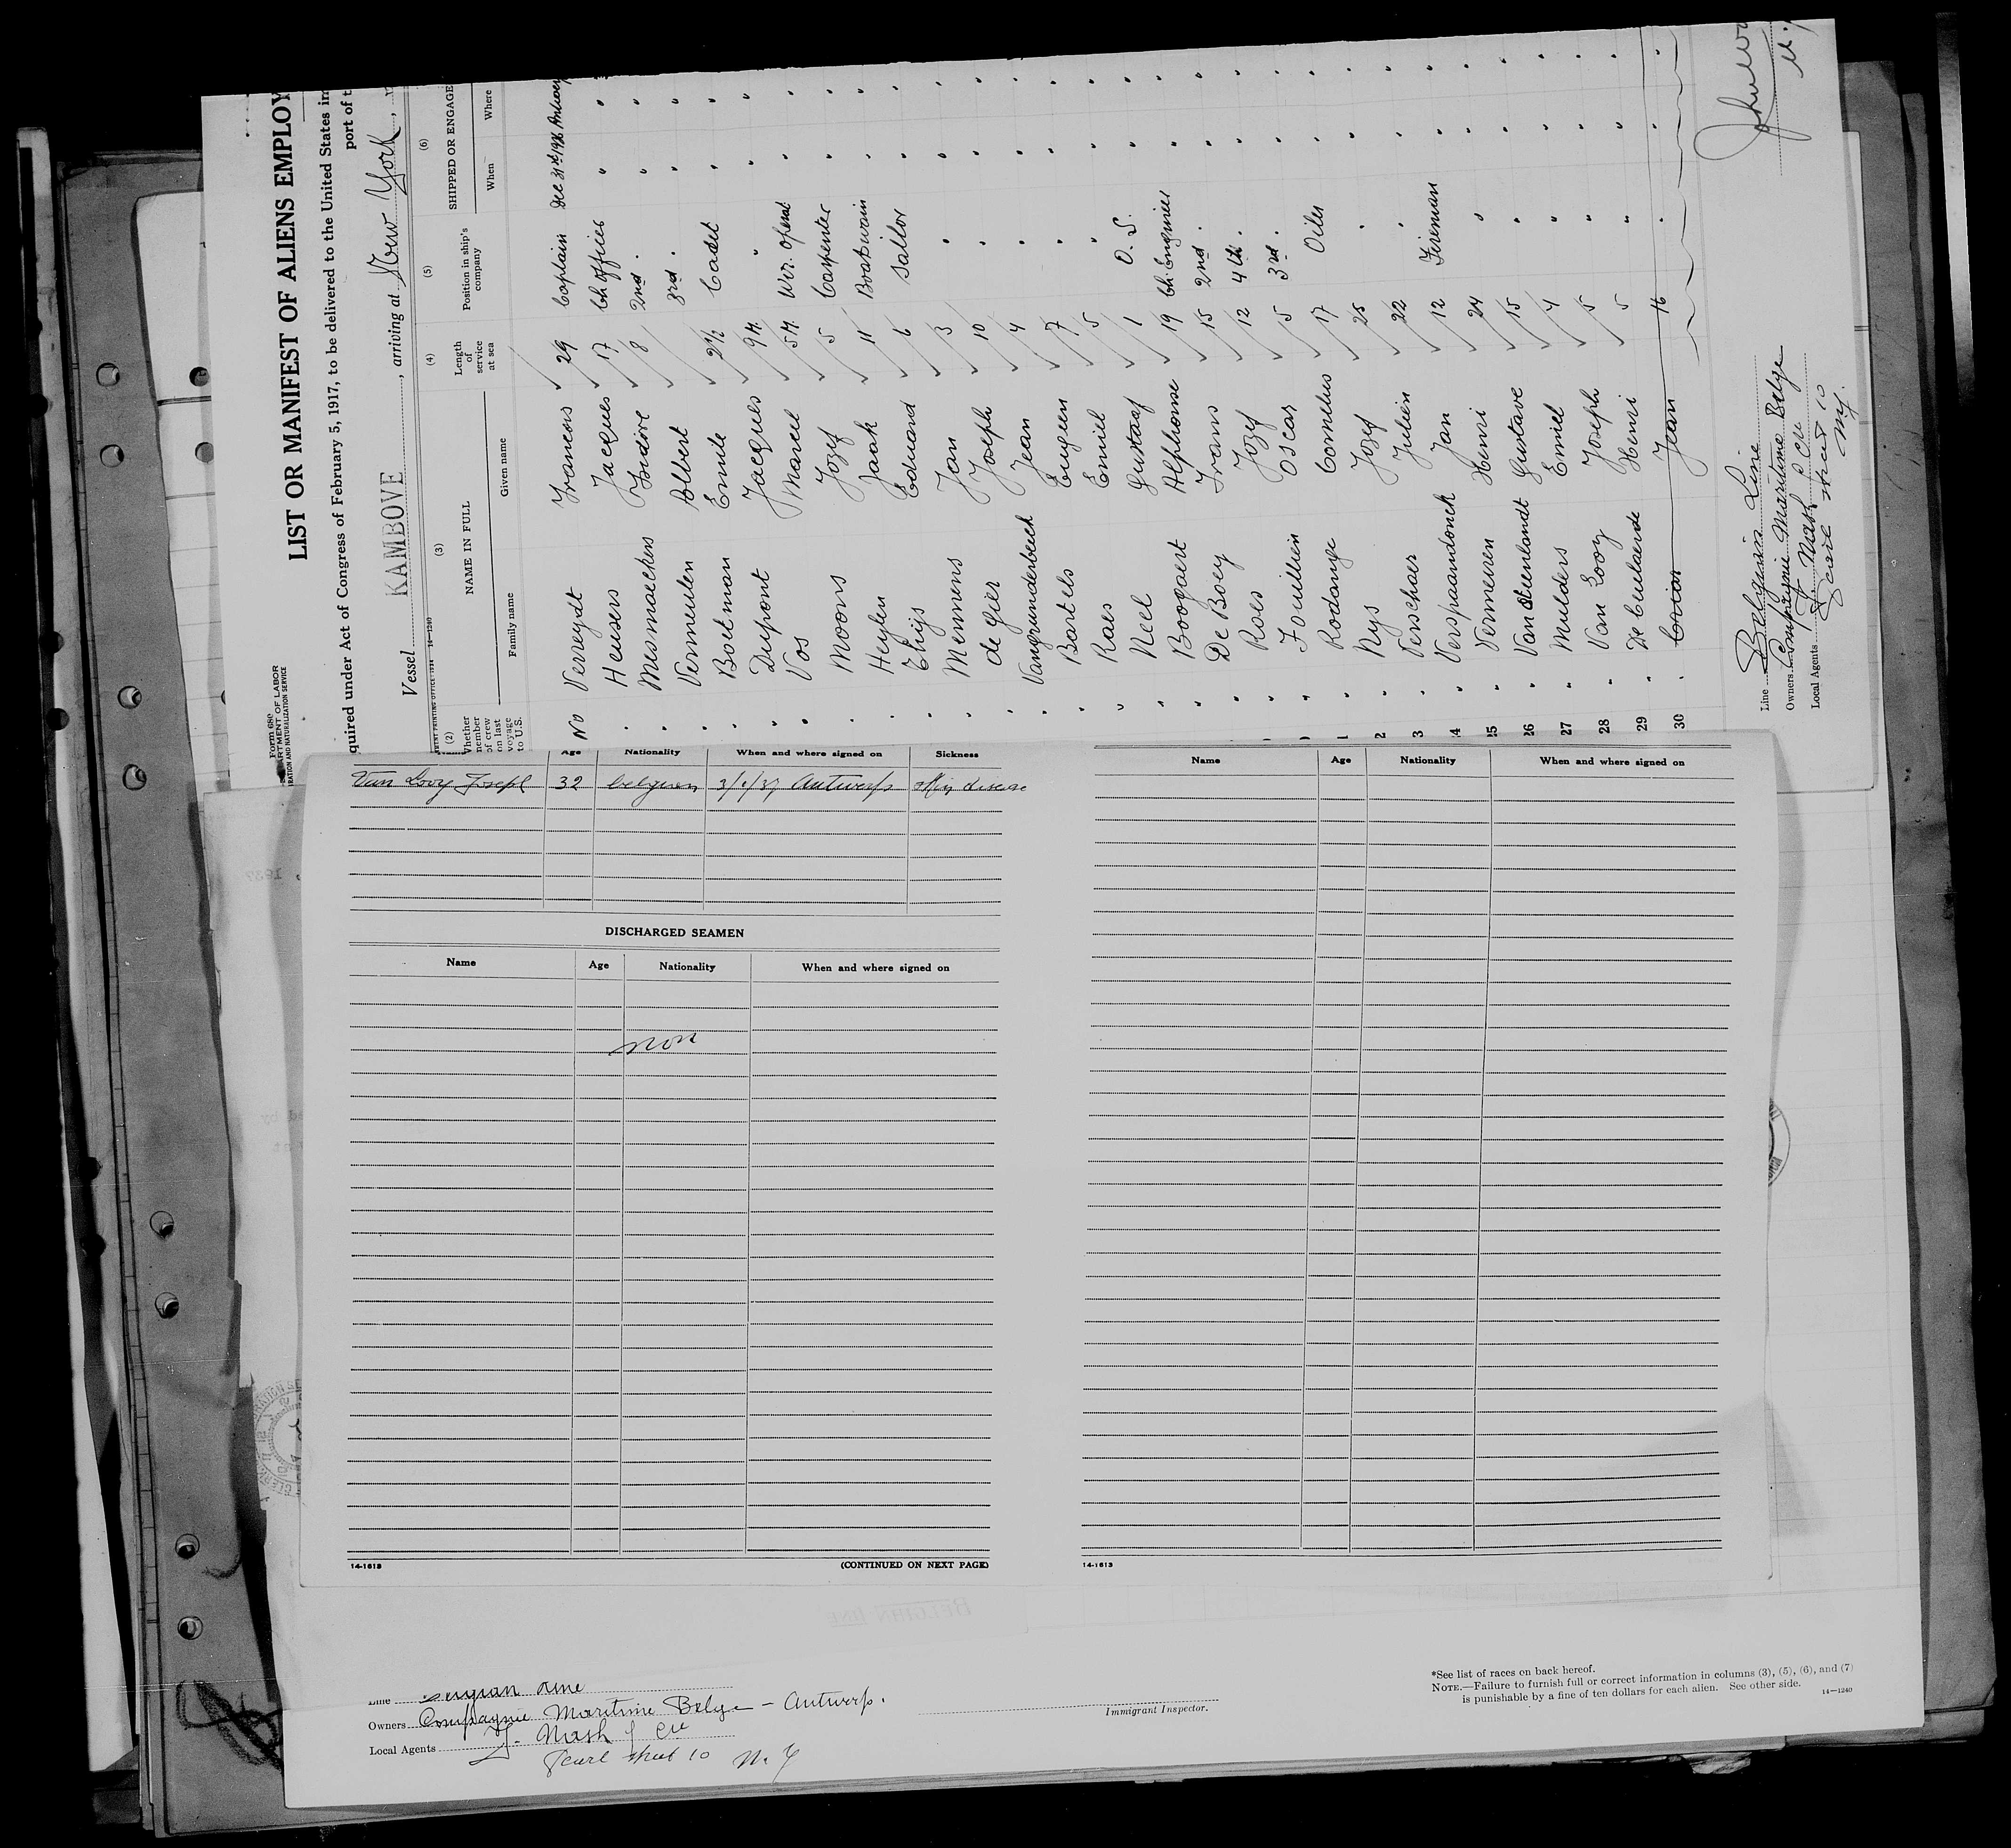 Form 680
DEPARTMENT OF LABOR
IMMIGRATION AND NATURALIZATION SERVICE
LIST OR MANIFEST OF ALIENS EMPLOY
quired under Act of Congress of February 5, 1917, to be delivered to the United States im
port of t
Vessel KAMBOVE, arriving at New York,
14-1240
(2) (3) (4) (5) (6)
Whether member of crew on last voyage to U.S. NAME IN FULL Length of service at sea Position in ship's company SHIPPED OR ENGAGE
Family name Given name When Where
No Verreydt Francois 29 Captain Dec 31st 1936 Antwerp
" Heusers Jacques 17 Ch. officer " "
" Mesmaekers Isidire 8 2nd " " "
" Vermeulen Albert 3rd " " "
" Boetman Emile 2½ Cadet " "
" Dupont Jacques 9 M. " " "
" Vos Marcel 5 M. Wir. operat " "
" Moons Jozef 5 Carpenter " "
" Heylen Jaak 11 Boatswain " "
" Thijs Eduard 6 Sailor " "
" Memmens Jan 3 " " "
" de Gier Joseph 10 " " "
" Vangrunderbeeck Jean 4 " " "
" Bartels Eugeen 7 " " "
" Raes Emiel 5 " " "
" Neel Gustaaf 1 O. S. " "
" Boogaert Alphonse 19 Ch. Engineer " "
" De Boey Frans 15 2nd " " "
" Roes Jozef 12 4th " " "
" Fouillien Oscar 5 3rd " " "
" Rodange Cornelius 17 Oiler " "
1 " Nys Jozef 25 " " "
2 " Verschaer Julien 22 " " "
3 " Verspaandonck Jan 12 Fireman " "
4 " Vermeiren Henri 24 " " "
25 " Van Steenlandt Gustave 15 " " "
26 " Mulders Emiel 4 " " "
27 " Van Looy Joseph 5 " " "
28 " De Ceulaerde Henri 5 " " "
29 " Jean 16 " " "
30
Line Belgian Line
Owners Compagnie Maritime Belge
Local Agents J. Nash & Cie
Pearl street 10
N.Y.
Age Nationality When and where signed on Sickness
Van Looy Joseph 32 belgian Antwerp skin disease
DISCHARGED SEAMEN
Name Age Nationality When and where signed on
non
14-1613 (CONTINUED ON NEXT PAGE)
Name Age Nationality When and where signed on
14-1613
BELGIAN LINE
Line Belgian Line
Owners Compagnie Maritime Belge - Antwerp.
Local Agents J. Nash & Cie
Pearl street 10 N. Y
Immigrant Inspector.
*See list of races on back hereof.
NOTE.—Failure to furnish full or correct information in columns (3), (5), (6), and (7)
is punishable by a fine of ten dollars for each alien. See other side. 14-1240